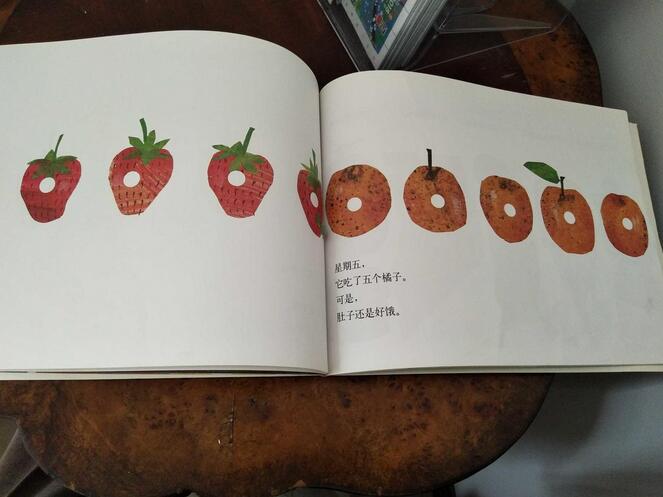 星期五，
它吃了五个橘子。
可是，
肚子还是好饿。